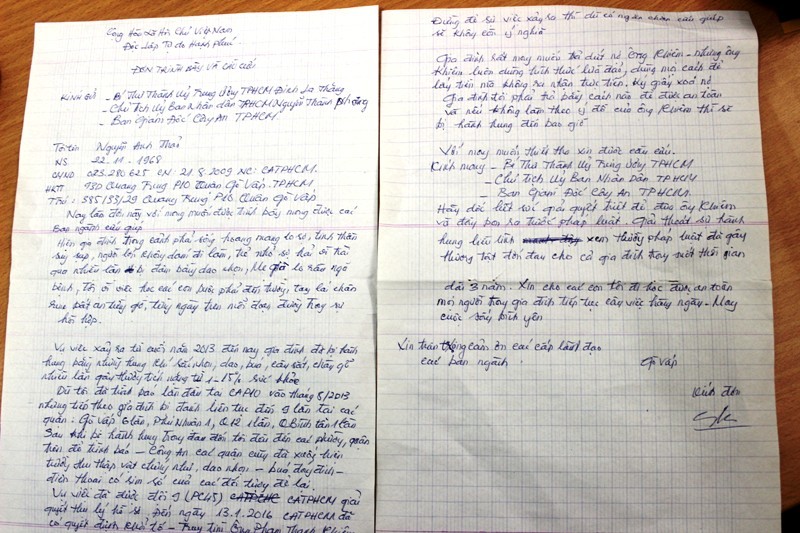 Cộng Hòa Xã Hội Chủ Việt Nam
Độc Lập Tự do Hạnh Phúc
ĐƠN TRÌNH BÀY VÀ CẦU CỨU
KÍNH GỞI - BÍ THƯ THÀNH UỶ TRUNG ƯƠNG TPHCM ĐINH LA THĂNG
- CHỦ TỊCH UỶ BAN NHÂN DÂN TPHCM NGUYỄN THÀNH PHONG
- BAN GIÁM ĐỐC CÔNG AN TPHCM.
Tôi tên Nguyễn Anh Thái
NS 22-11-1968
CMND 023.280625 CN: 21.8.2009 NC: CATPHCM.
HKTT 930 Quang Trung P10 Quận Gò Vấp. TPHCM.
Tạm: 585/53/29 Quang Trung P10. Quận Gò Vấp
Nay làm đơn này với mong muốn được trình bày mong được các
Ban ngành cứu giúp
Hiện gia đình trong cảnh phải sống hoang mang lo sợ, tinh thần
suy sụp, người lớn không dám đi làm, trẻ nhỏ sợ hãi vì trải
qua nhiều lần bị đâm bằng dao nhọn, Mẹ già lo lắng ngã
bệnh, Tôi và việc học các con luôn phải
bất an từng giờ, từng ngày trên mỗi đoạn đường hay sự
hồi hộp.
Vụ việc xảy ra từ cuối năm 2013 đến nay gia đình đã bị hành
hung bằng những hung khí dao, búa, cây sắt, cây gỗ
nhiều lần gây thương tích nặng từ 1-15% sức khỏe
Dù tôi đã trình báo lần đầu tại CAP10 vào tháng 8/2013
nhưng tiếp theo gia đình bị đánh liên tục đến 9 lần tại các
quận: Gò Vấp 6 lần, Phú Nhuận 1, Q12 1 lần, Q Bình tân 1 lần
Sau khi bị hành hung trong đau đớn tôi đều đến các phường, quận
trên để trình báo - Công An các quận cũng đã xuống hiện
trường thu thập vật chứng như, dao nhọn - búa
điện thoại có sim số của các đối tượng để lại.
Vụ việc đã được đội 9 (PC45) CATPHCM giải
quyết thụ lý hồ sơ. Đến ngày 13.1.2016 CATPHCM đã
có quyết định khởi tố - Truy tìm Ông Phạm Thanh Khiêm
Đừng để sự việc xảy ra thì dù có ngàn chân cứu giúp
sẽ không còn ý nghĩa
Gia đình rất mong muốn trả dứt nợ Ông Khiêm - nhưng ông
Khiêm luôn dùng hình thức lừa đảo, dùng mọi cách để
lấy tiền mà không xác nhận trước tiền. Ký giấy xoá nợ
Gia đình tôi phải trả bấy cách nào để được an toàn
và nếu không làm theo ý đồ của ông Khiêm thì sẽ
bị hành hung đến bao giờ
Với mong muốn thiết tha xin được cầu cứu.
Kính mong - BÍ THƯ THÀNH UỶ TRUNG ƯƠNG TPHCM
- CHỦ TỊCH UỶ BAN NHÂN DÂN TPHCM
BAN GIÁM ĐỐC CÔNG AN TPHCM.
Hãy giải quyết triệt để đưa ông Khiêm
và đồng bọn ra trước pháp luật. Giải thoát sự hành
hung liều lĩnh xem thường pháp luật đã gây
thương tật đớn đau cho cả gia đình trong suốt thời gian
dài 3 năm. Xin cho các con tôi đi học được an toàn
mọi người trong gia đình tiếp tục công việc hằng ngày - May
cuộc sống bình yên
Xin trân trọng cảm ơn các cấp lãnh đạo
các ban ngành
Gò Vấp
Kính đơn